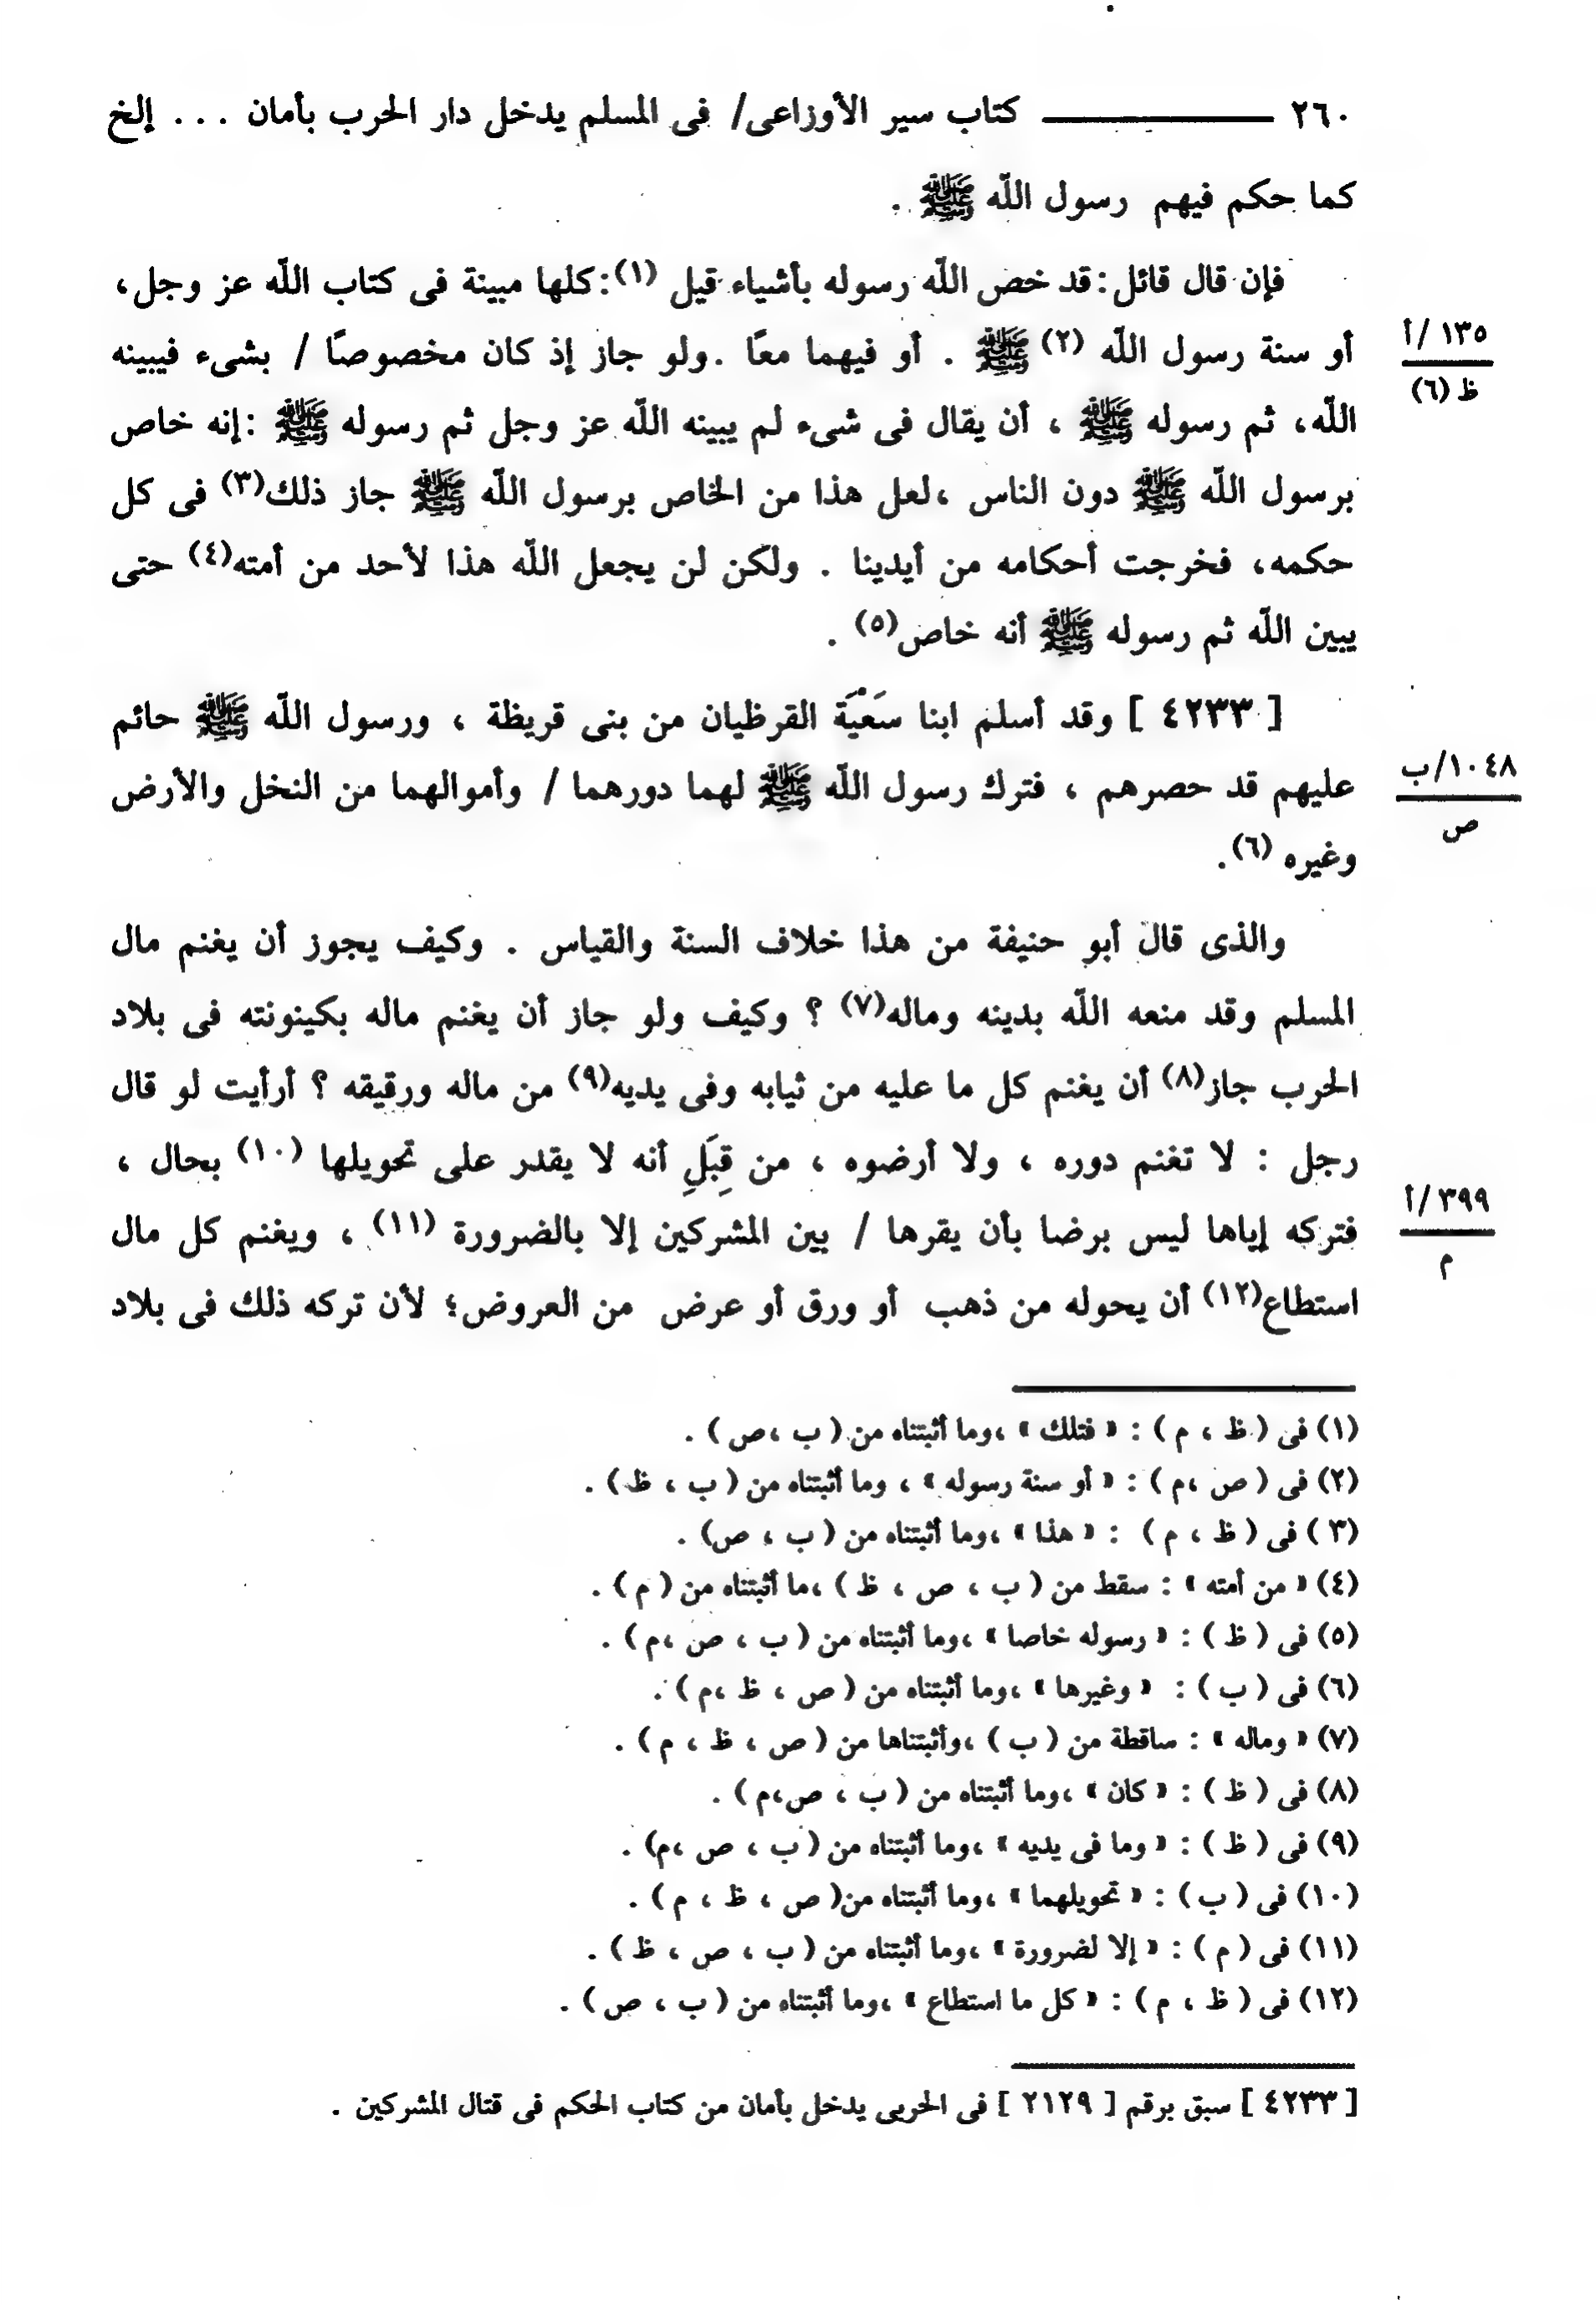 ٢٦٠ ــــــــــــ كتاب سير الأوزاعى/ فى المسلم يدخل دار الحرب بأمان . . . إلخ
كما حكم فيهم رسول اللّه ﷺ .
فإن قال قائل : قد خص اللّه رسوله بأشياء قيل (١) : كلها مبينة فى كتاب اللّه عز وجل،
أو سنة رسول اللّه (٢) ﷺ . أو فيهما معًا . ولو جاز إذ كان مخصوصًا / بشىء فيبينه
١٣٥/أ
ظ (٦)
اللّه، ثم رسوله ﷺ ، أن يقال فى شىء لم يبينه اللّه عز وجل ثم رسوله ﷺ : إنه خاص
برسول اللّه ﷺ دون الناس ، لعل هذا من الخاص برسول اللّه ﷺ جاز ذلك(٣) فى كل
حكمه، فخرجت أحكامه من أيدينا . ولكن لن يجعل اللّه هذا لأحد من أمته(٤) حتى
يبين اللّه ثم رسوله ﷺ أنه خاص(٥) .
[ ٤٢٣٣ ] وقد أسلم ابنا سَعْيَة القرظيان من بنى قريظة ، ورسول اللّه ﷺ حائم
عليهم قد حصرهم ، فترك رسول اللّه ﷺ لهما دورهما / وأموالهما من النخل والأرض
١٠٤٨/ب
ص
وغيره (٦).
والذى قال أبو حنيفة من هذا خلاف السنة والقياس . وكيف يجوز أن يغنم مال
المسلم وقد منعه اللّه بدينه وماله(٧) ؟ وكيف ولو جاز أن يغنم ماله بكينونته فى بلاد
الحرب جاز(٨) أن يغنم كل ما عليه من ثيابه وفى يديه(٩) من ماله ورقيقه ؟ أرأيت لو قال
رجل : لا تغنم دوره ، ولا أرضوه ، من قِبَلِ أنه لا يقدر على تحويلها (١٠) بحال ،
فتركه إياها ليس برضا بأن يقرها / بين المشركين إلا بالضرورة (١١) ، ويغنم كل مال
٣٩٩/أ
م
استطاع(١٢) أن يحوله من ذهب أو ورق أو عرض من العروض؛ لأن تركه ذلك فى بلاد
(١) فى ( ظ ، م ) : « فتلك » ، وما أثبتناه من ( ب ، ص ) .
(٢) فى ( ص ، م ) : « أو سنة رسوله » ، وما أثبتناه من ( ب ، ظ ) .
(٣ ) فى ( ظ ، م ) : « هذا » ، وما أثبتناه من ( ب ، ص) .
(٤) « من أمته » : سقط من ( ب ، ص ، ظ ) ، ما أثبتناه من ( م ) .
(٥) فى ( ظ ) : « رسوله خاصا » ، وما أثبتناه من ( ب ، ص ، م ) .
(٦) فى ( ب ) : « وغيرها » ، وما أثبتناه من ( ص ، ظ ، م ) .
(٧) « وماله » : ساقطة من ( ب ) ، وأثبتناها من ( ص ، ظ ، م ) .
(٨) فى ( ظ ) : « كان » ، وما أثبتناه من ( ب ، ص،م ) .
(٩) فى ( ظ ) : « وما فى يديه » ، وما أثبتناه من ( ب ، ص ، م) .
(١٠) فى ( ب ) : « تحويلهما » ، وما أثبتناه من( ص ، ظ ، م ) .
(١١) فى ( م ) : « إلا لضرورة » ، وما أثبتناه من ( ب ، ص ، ظ ) .
(١٢) فى ( ظ ، م ) : « كل ما استطاع » ، وما أثبتناه من ( ب ، ص ) .
[ ٤٢٣٣ ] سبق برقم [ ٢١٢٩ ] فى الحربى يدخل بأمان من كتاب الحكم فى قتال المشركين .